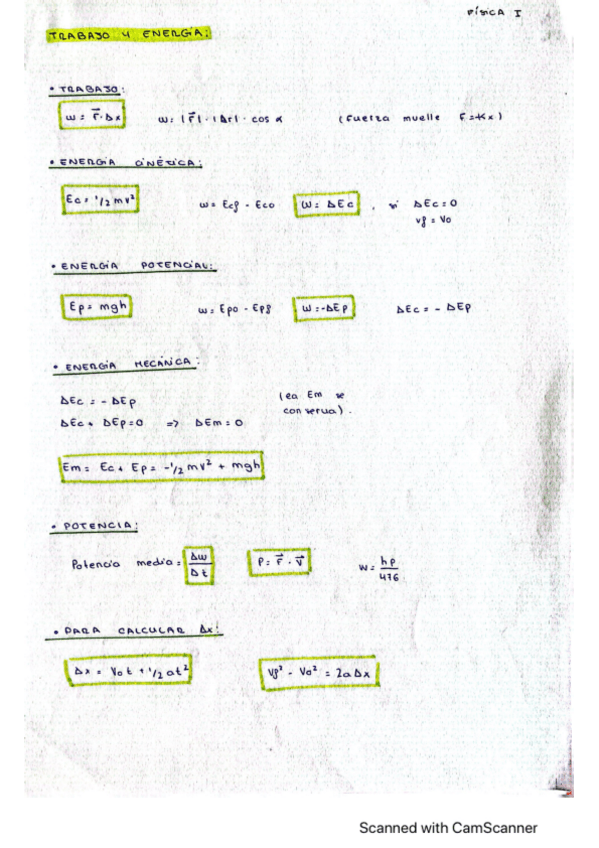 FÍSICA I
TRABAJO Y ENERGÍA:
• TRABAJO:
W = F⃗·Δx   W = |F⃗|·|Δr|·cos α   (Fuerza muelle F=-Kx)
• ENERGÍA CINÉTICA:
Ec = 1/2 mv²   W = Ecf - Eco   W = ΔEc , si ΔEc = 0
vf = vo
• ENERGÍA POTENCIAL:
Ep = mgh   W = Epo - Epf   W = -ΔEp   ΔEc = - ΔEp
• ENERGÍA MECÁNICA:
ΔEc = - ΔEp   (ea Em se
ΔEc + ΔEp = 0 => ΔEm = 0   conserva).
Em = Ec + Ep = -1/2 mv² + mgh
• POTENCIA:
Potencia media = Δw/Δt   P = F⃗ · v⃗   W = hp/476
• PARA CALCULAR Δx:
Δx = Vot + 1/2 at²   Vf² - Vo² = 2aΔx
Scanned with CamScanner